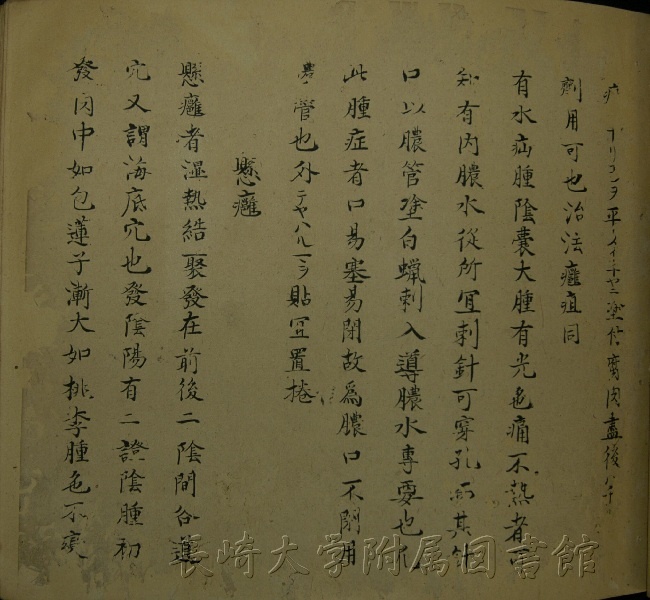 劑用可也治法癰疽同
有水疝腫陰囊大腫有光色痛不熱者可
知有内膿水從所宜刺針可穿孔而其針
口以膿管塗白蠟刺入導膿水專要也凡
此腫症者口易塞易閉故爲膿口不閉用
管也外テヤハルーン貼宜置捲
懸癰
懸癰者濕熱結聚發在前後二陰間會
穴又謂海底穴也發陰陽有二證陰腫初
發肉中如包蓮子漸大如桃李腫色不變
長崎大学附属図書館